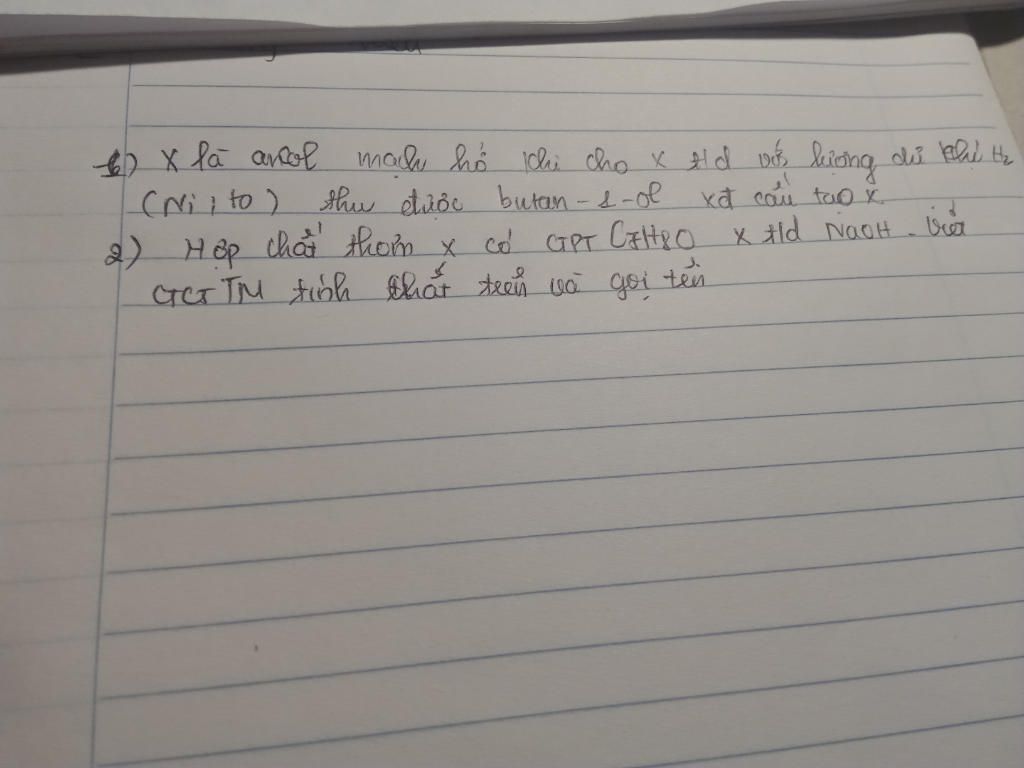 1) X là ancol mạch hở khi cho X t/d với lượng dư khí H₂
(Ni, to) thu được butan-1-ol xđ cấu tạo X.
2) Hợp chất thơm X có CTPT C7H8O X t/d NaOH. Viết
CTCT TM tính chất trên và gọi tên